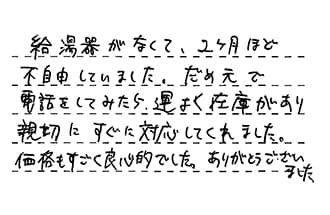 給湯器がなくて、2ヶ月ほど
不自由していました。だめ元で
電話をしてみたら、運よく在庫があり
親切にすぐに対応してくれました。
価格もすごく良心的でした。ありがとうござい
ました